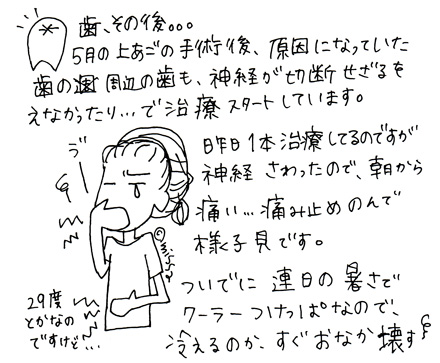 歯、その後。。。
5月の上あごの手術後、原因になっていた
歯の周辺の歯も、神経が切断せざるを
えなかったり…で治療スタートしています。
昨日1本治療してるのですが
神経さわったので、朝から
痛い…痛み止めのんで
様子見です。
ついでに連日の暑さで
クーラーつけっぱなので、
冷えるのか、すぐおなか壊す
29度
とかなの
ですけど…